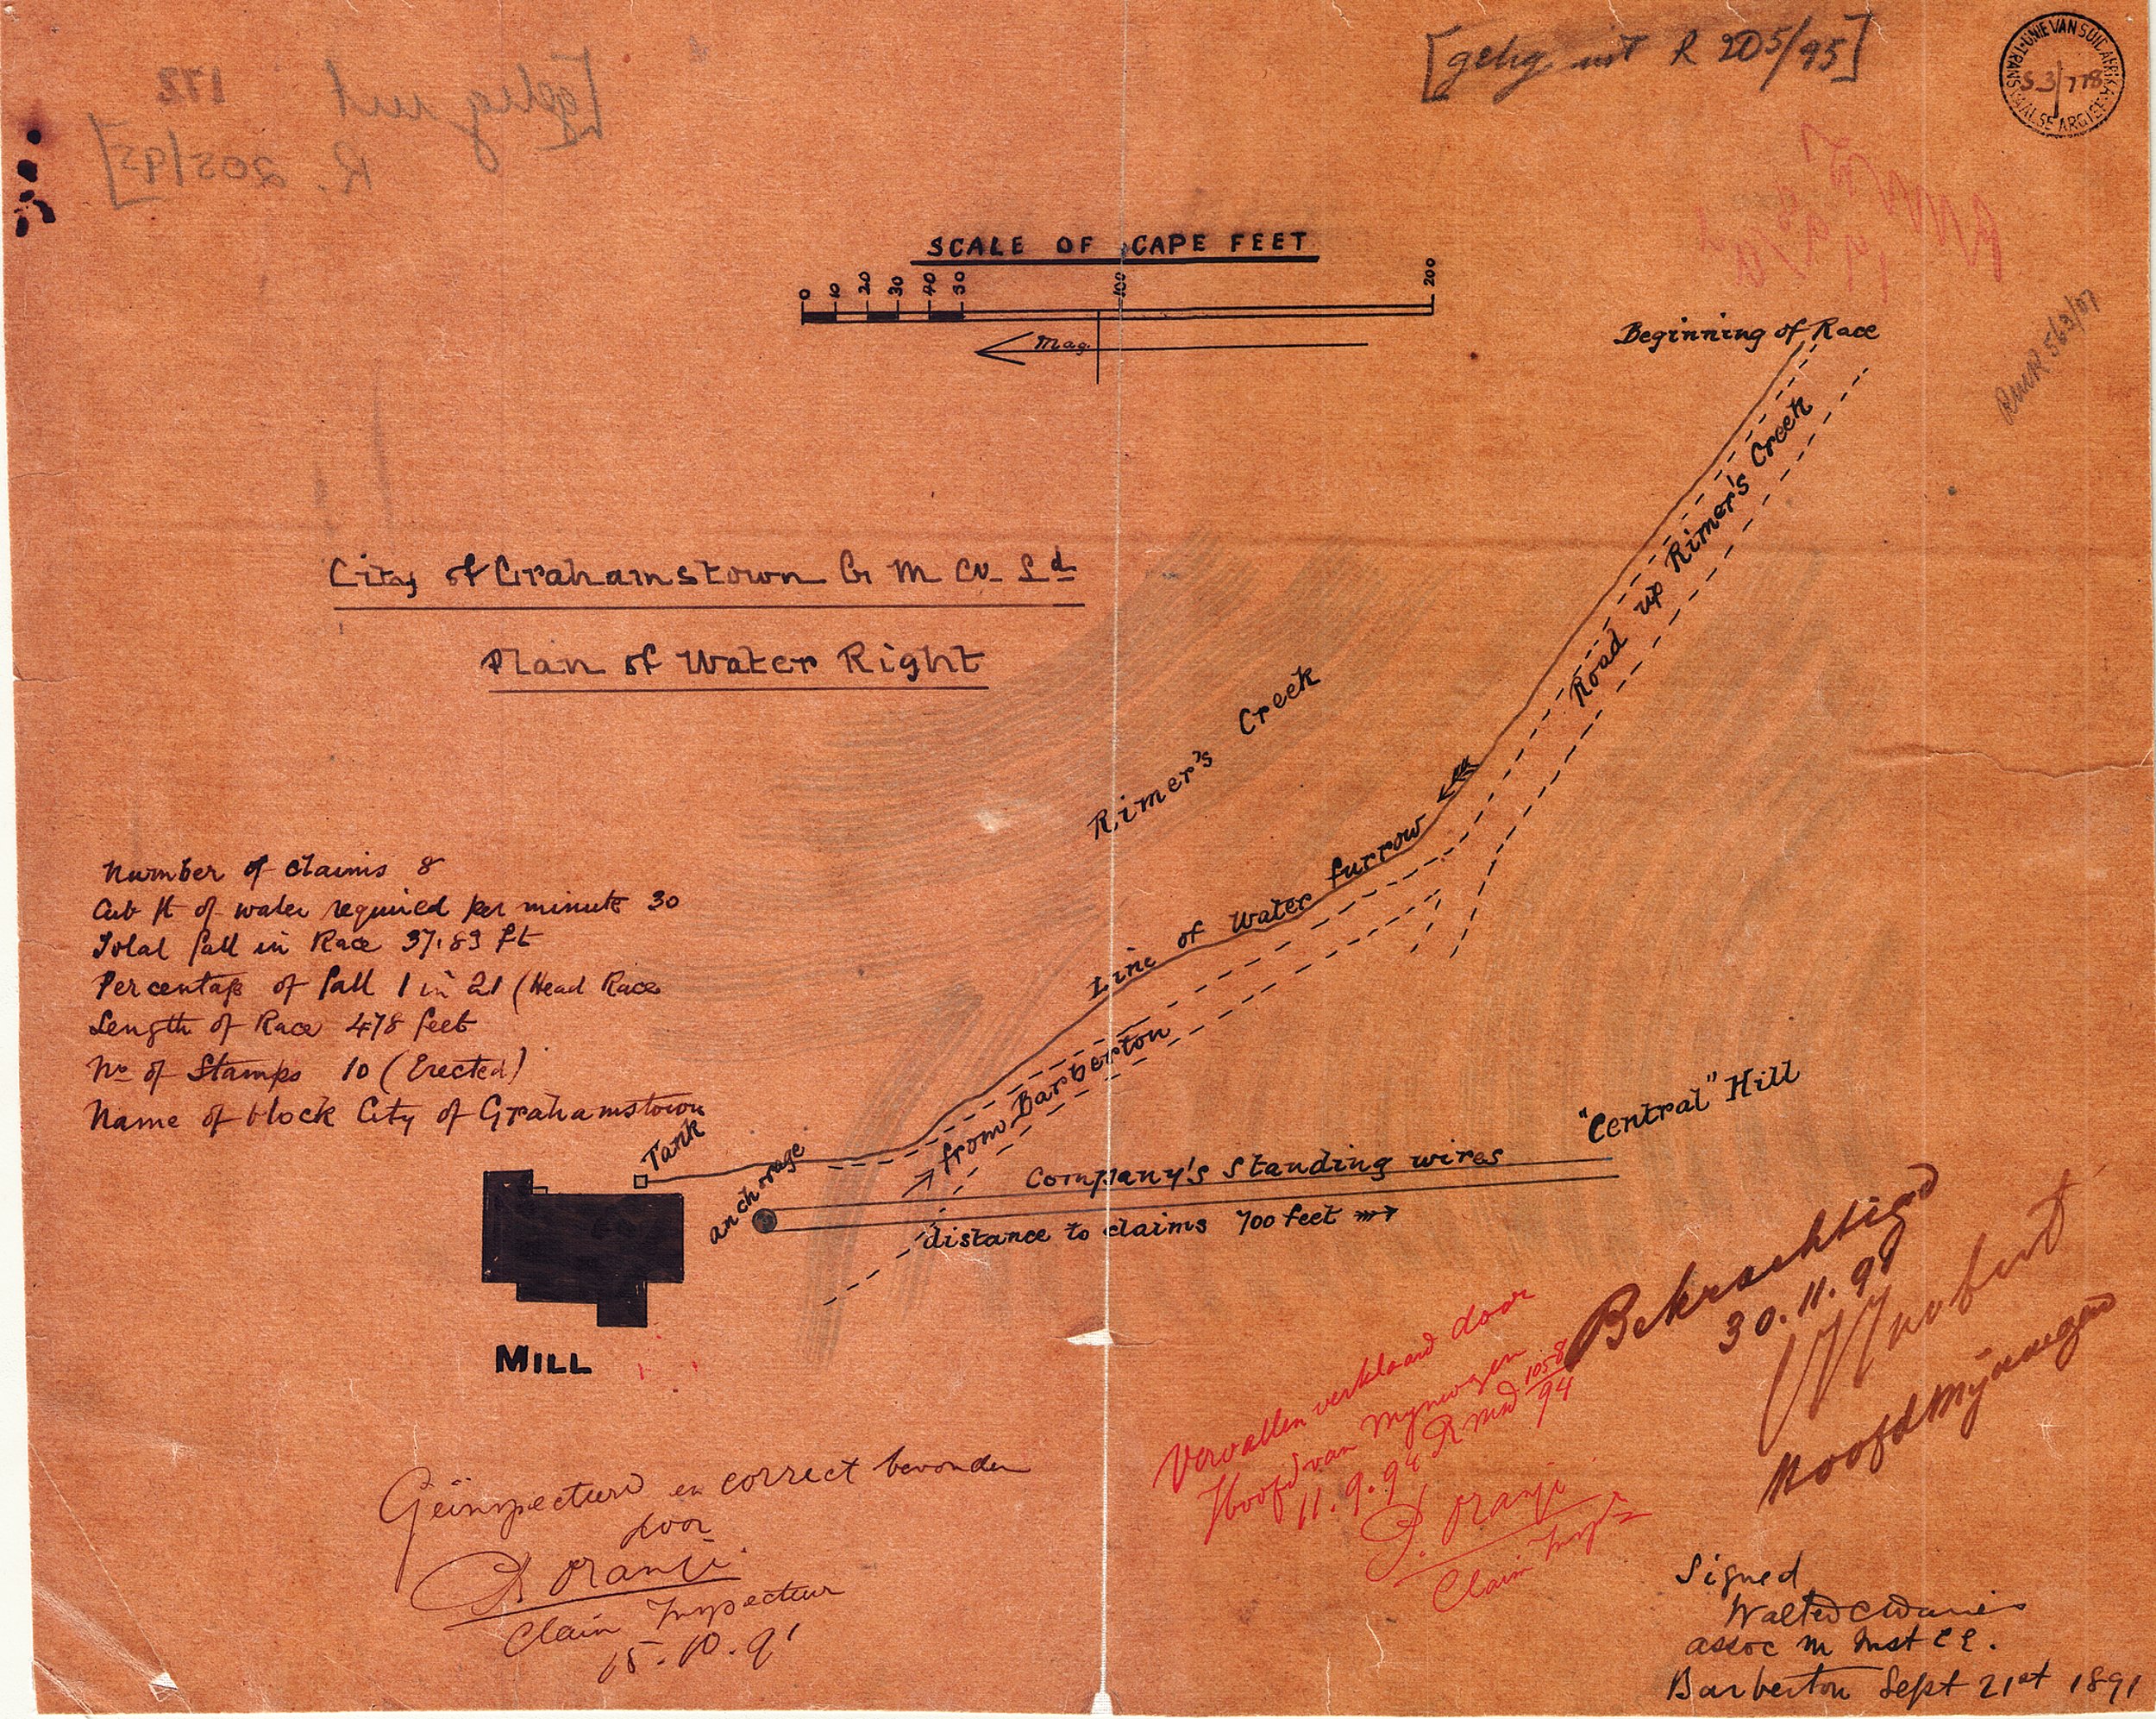 [geliq uit R 205/95]
TRANSVAALSE ARGIEF
UNIE VAN SUID AFRIKA
S.3/778
173
[geliq uit
R. 205/95]
SCALE OF CAPE FEET
0 10 20 30 40 50 100 200
Mag.
Beginning of Race
RMR 563/07
Road up Rimer's Creek
City of Grahamstown G M Co Ld
Plan of Water Right
Rimer's Creek
Line of Water furrow
Number of claims 8
Cub ft of water required per minute 30
Total fall in Race 37.83 ft
Percentage of fall 1 in 21 (Head Race
Length of Race 478 feet
No of Stamps 10 (Erected)
Name of block City of Grahamstown
Tank
anchorage
from Barberton
Company's Standing wires
distance to claims 700 feet
"Central" Hill
MILL
Bekrachtigd
30.11.91
Hoofd Mijnwezen
Vervallen verklaard door
Hoofd van Mynwezen
11.9.94 R MD 1058/94
D. Oranje
Claim Insp
Geïnspecteerd en correct bevonden
door
D Oranje
Claim Inspecteur
15.10.91
Signed
Walter
assoc M Inst C E.
Barberton Sept 21st 1891